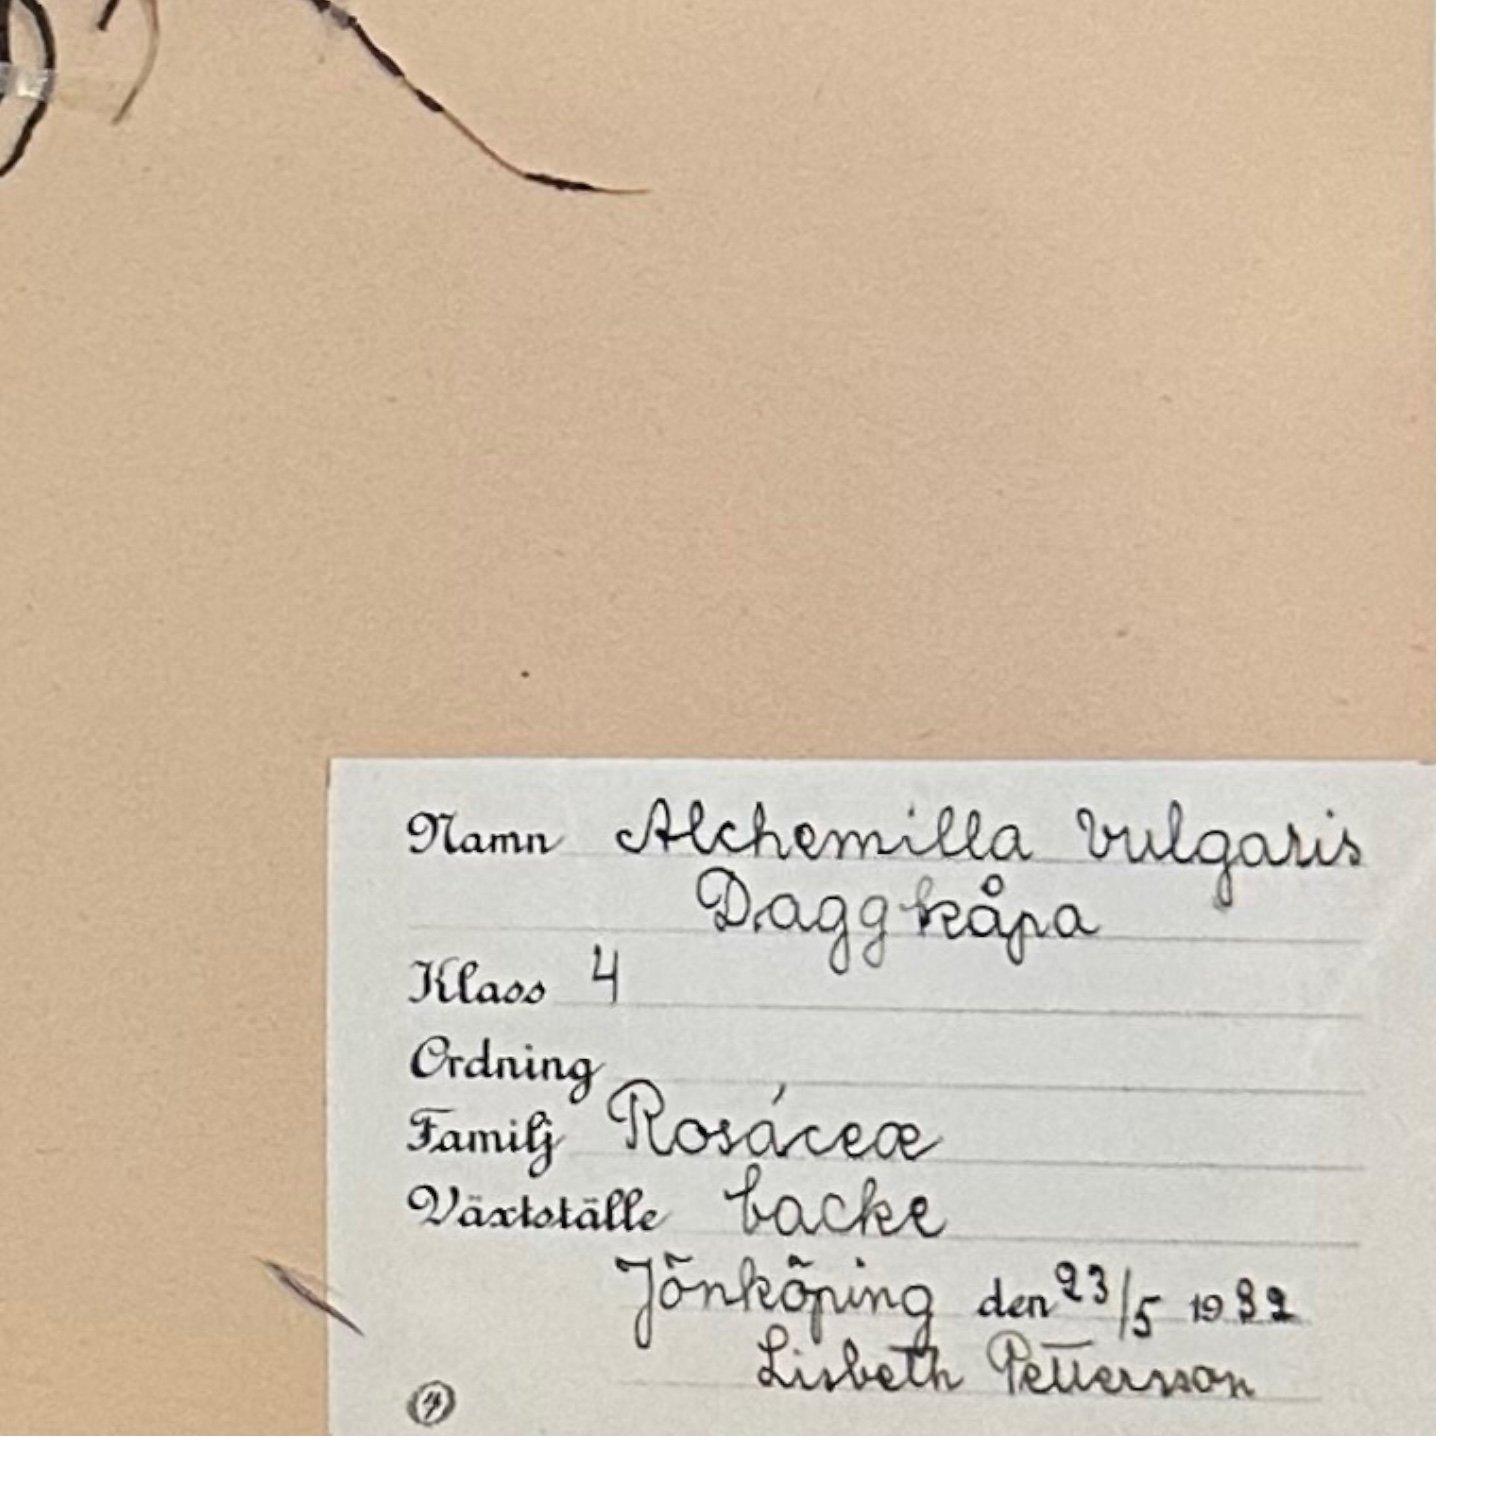 Namn Alchemilla vulgaris
Daggkåpa
Klass 4
Ordning
Familj Rosáceæ
Växtställe backe
Jönköping den 23/5 1932
Lisbeth Pettersson
4